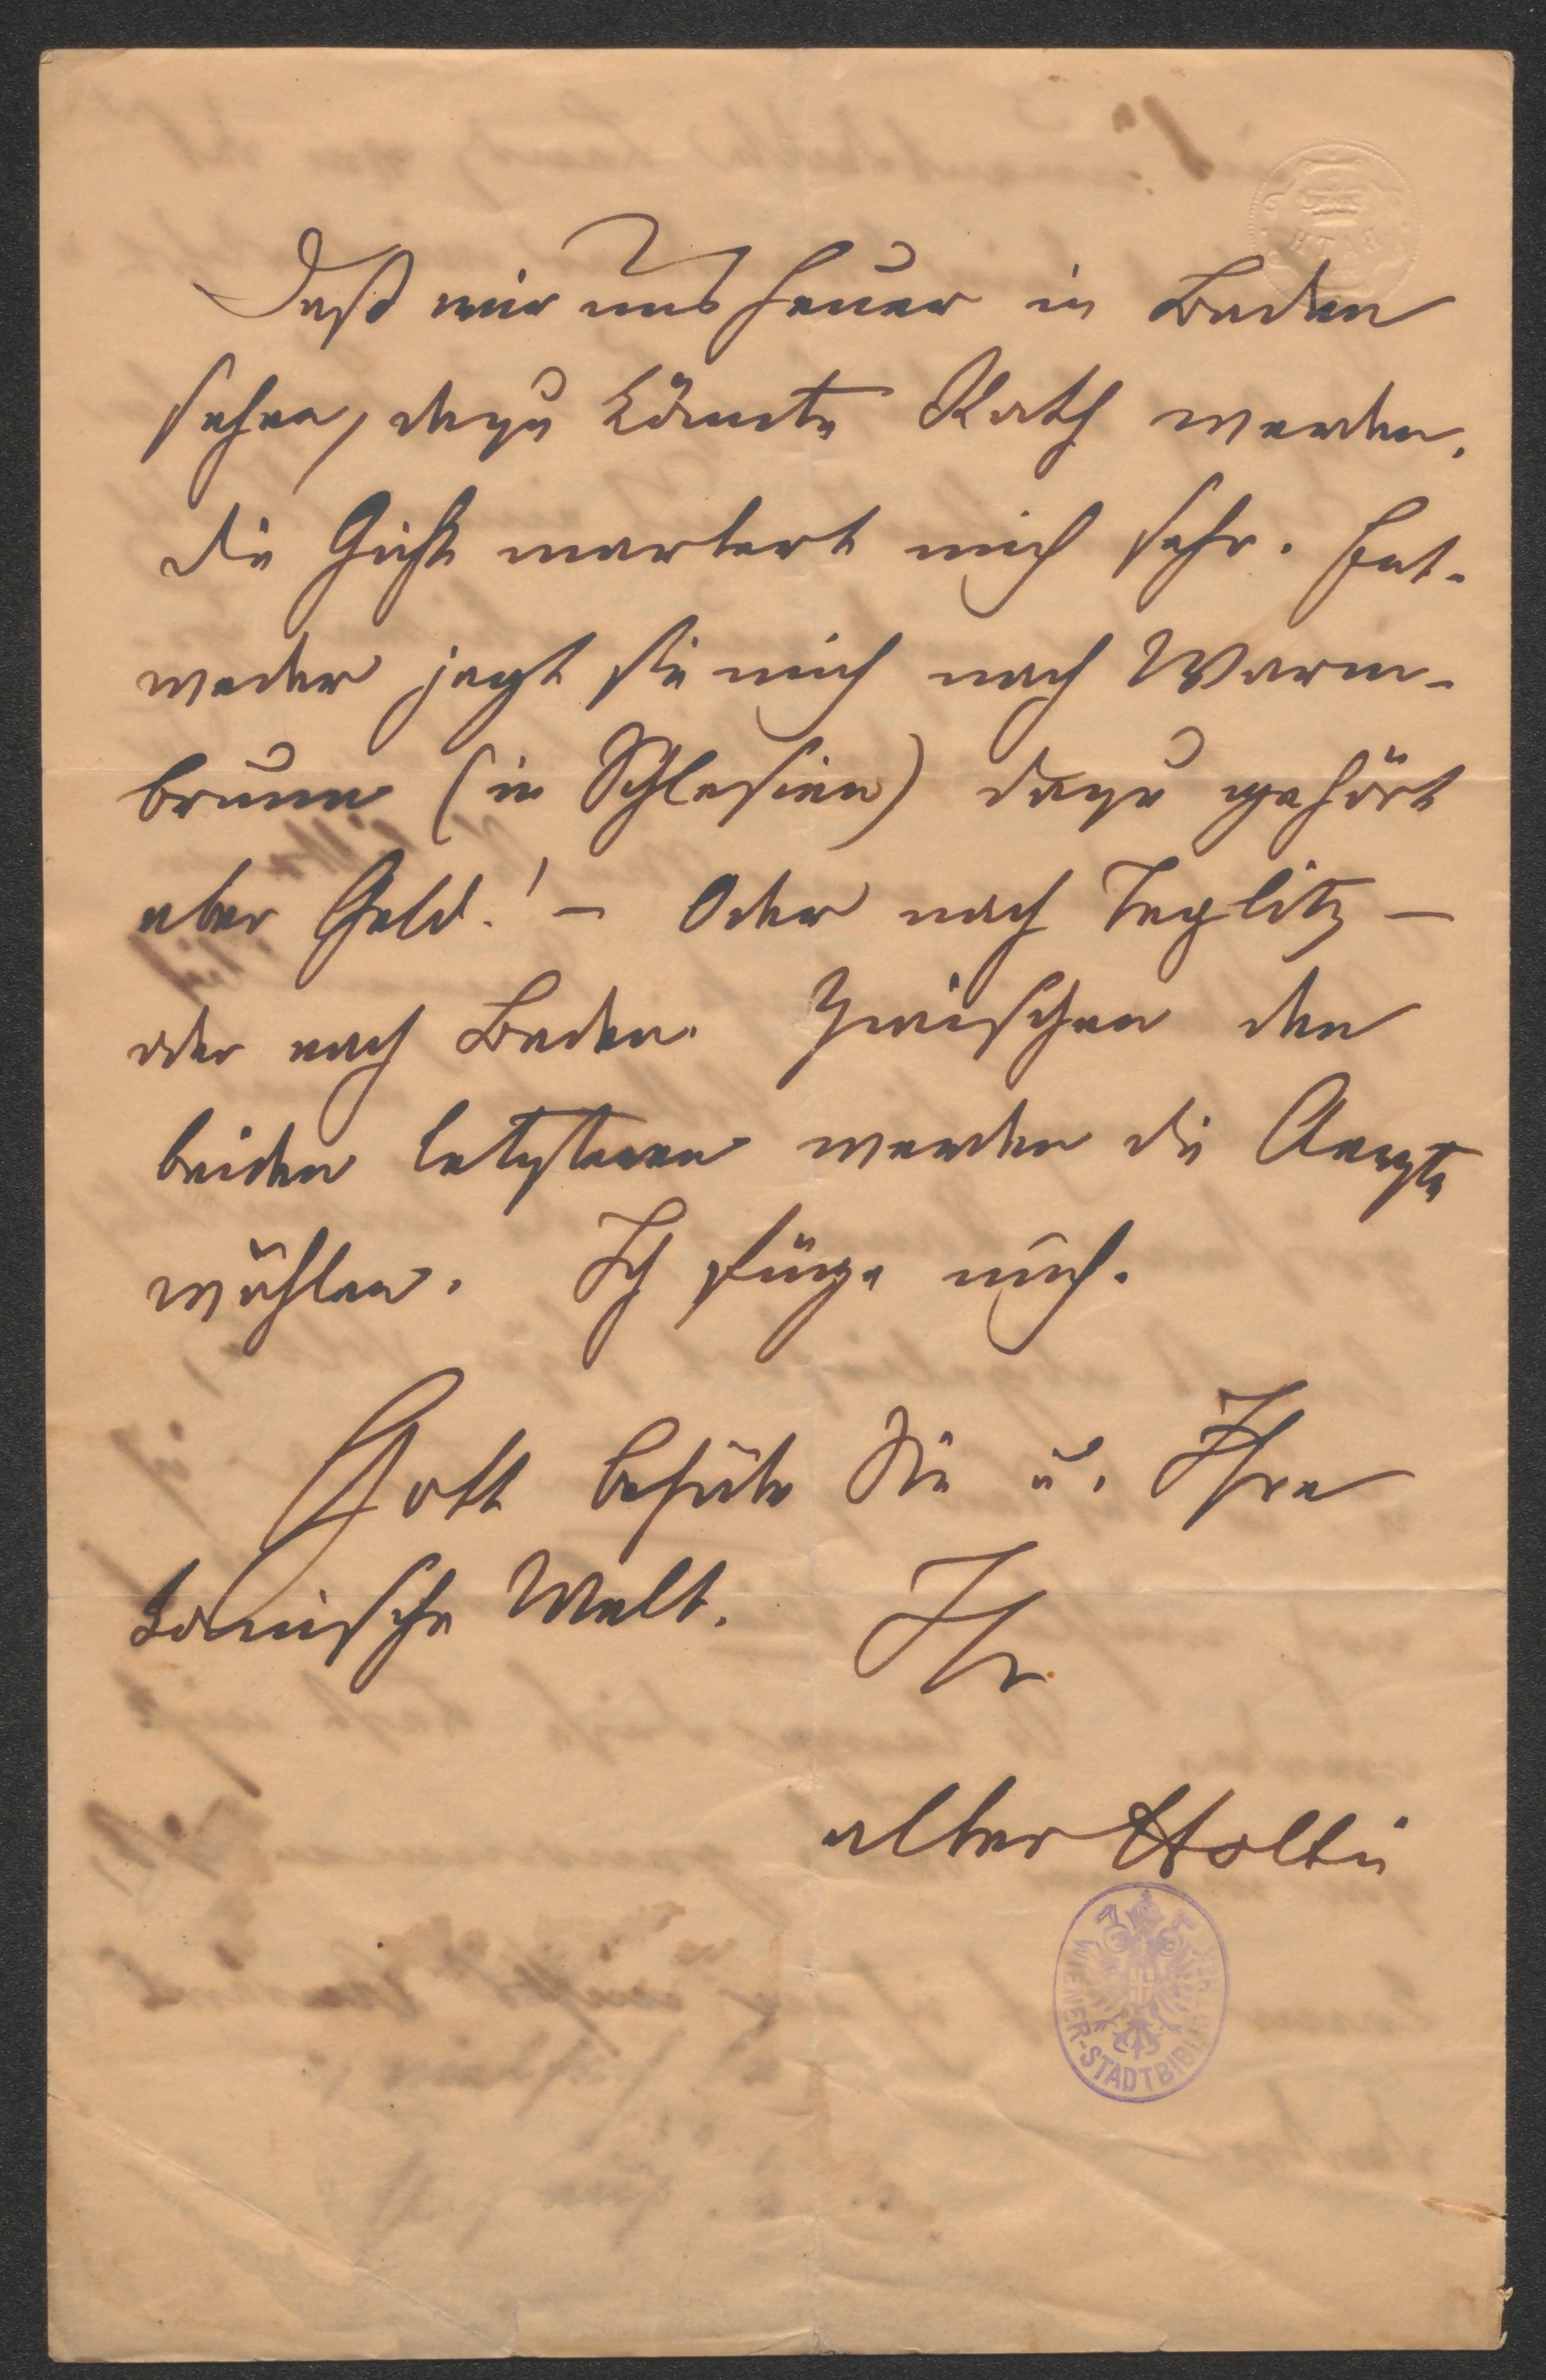 Daß wir uns heuer in Baden
sehen, dazu könnte Rath werden.
Die Gicht martert mich sehr. Ent-
weder jagt sie mich nach Warm-
brunn (in Schlesien) dazu gehört
aber Geld! – Oder nach Teplitz –
oder nach Baden. Zwischen den
beiden letzteren werden die Aerzte
wählen. Ich füge mich.
Gott behüte Sie u. Ihre
komische Welt. Ihr
alter Holtei
WIENER-STADTBIBLIOTHEK